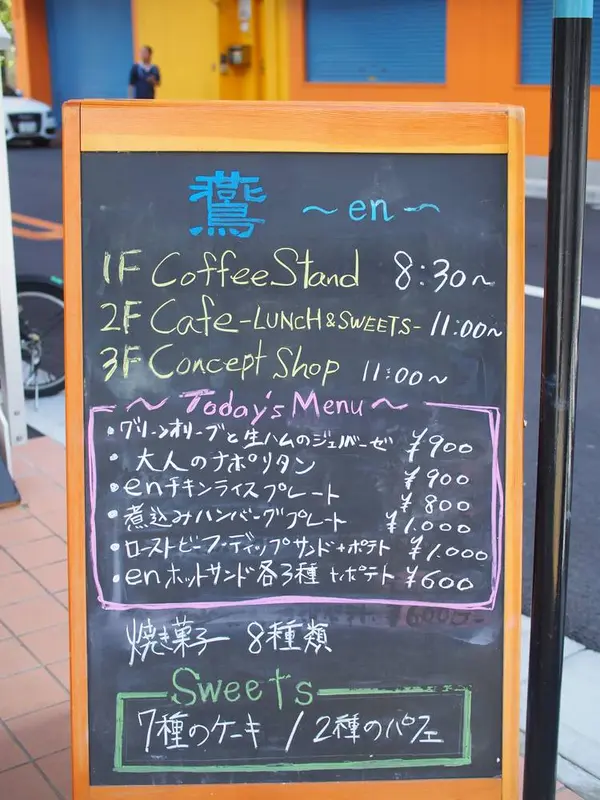 ~en~
1F Coffee Stand 8:30~
2F Cafe -LUNCH&SWEETS- 11:00~
3F Concept Shop 11:00~
~Today's Menu~
・グリーンオリーブと生ハムのジェノベーゼ ¥900
・大人のナポリタン ¥900
・enチキンライスプレート ¥800
・煮込みハンバーグプレート ¥1.000
・ローストビーフ・ディップサンド+ポテト ¥1.000
・enホットサンド各3種 +ポテト ¥600
焼き菓子 8種類
Sweets
7種のケーキ / 2種のパフェ